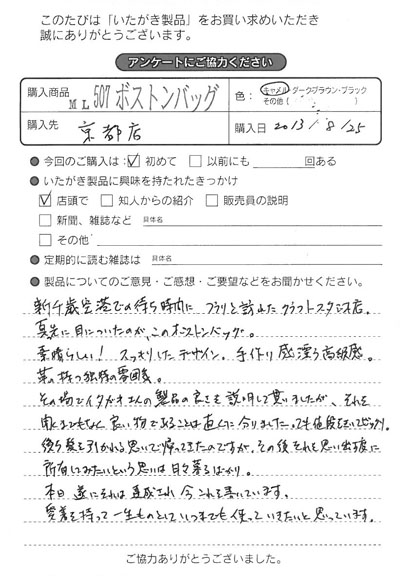 このたびは「いたがき製品」をお買い求めいただき
誠にありがとうございます。
アンケートにご協力ください
購入商品 ML507 ボストンバッグ 色：キャメル・ダークブラウン・ブラック
その他（ ）
購入先 京都店 購入日 2013/8/25
● 今回のご購入は：☑ 初めて □ 以前にも 回ある
● いたがき製品に興味を持たれたきっかけ
☑ 店頭で □ 知人からの紹介 □ 販売員の説明
□ 新聞、雑誌など 具体名
□ その他
● 定期的に読む雑誌は 具体名
● 製品についてのご意見・ご感想・ご要望などをお聞かせください。
新千歳空港での待ち時間に フラリと訪れた クラフトスタジオ店。
真先に目についたのが、このボストンバッグ。
素晴らしい！ スッキリしたデザイン。手作り感漂う高級感。
革の持つ独特の雰囲気。
その場でイタガキさんの製品の良さを説明して貰いましたが、それを
聞くまでもなく良い物であることは直ぐに分りました。でも値段を見てビックリ。
後ろ髪を引かれる思いで帰ってきたのですが、その後それを思い出す度に
所有してみたいという思いは日々募るばかり。
本日 遂にそれは達成され 今 これを書いています。
愛着を持って一生ものとしていつまでも使っていきたいと思っています。
ご協力ありがとうございました。